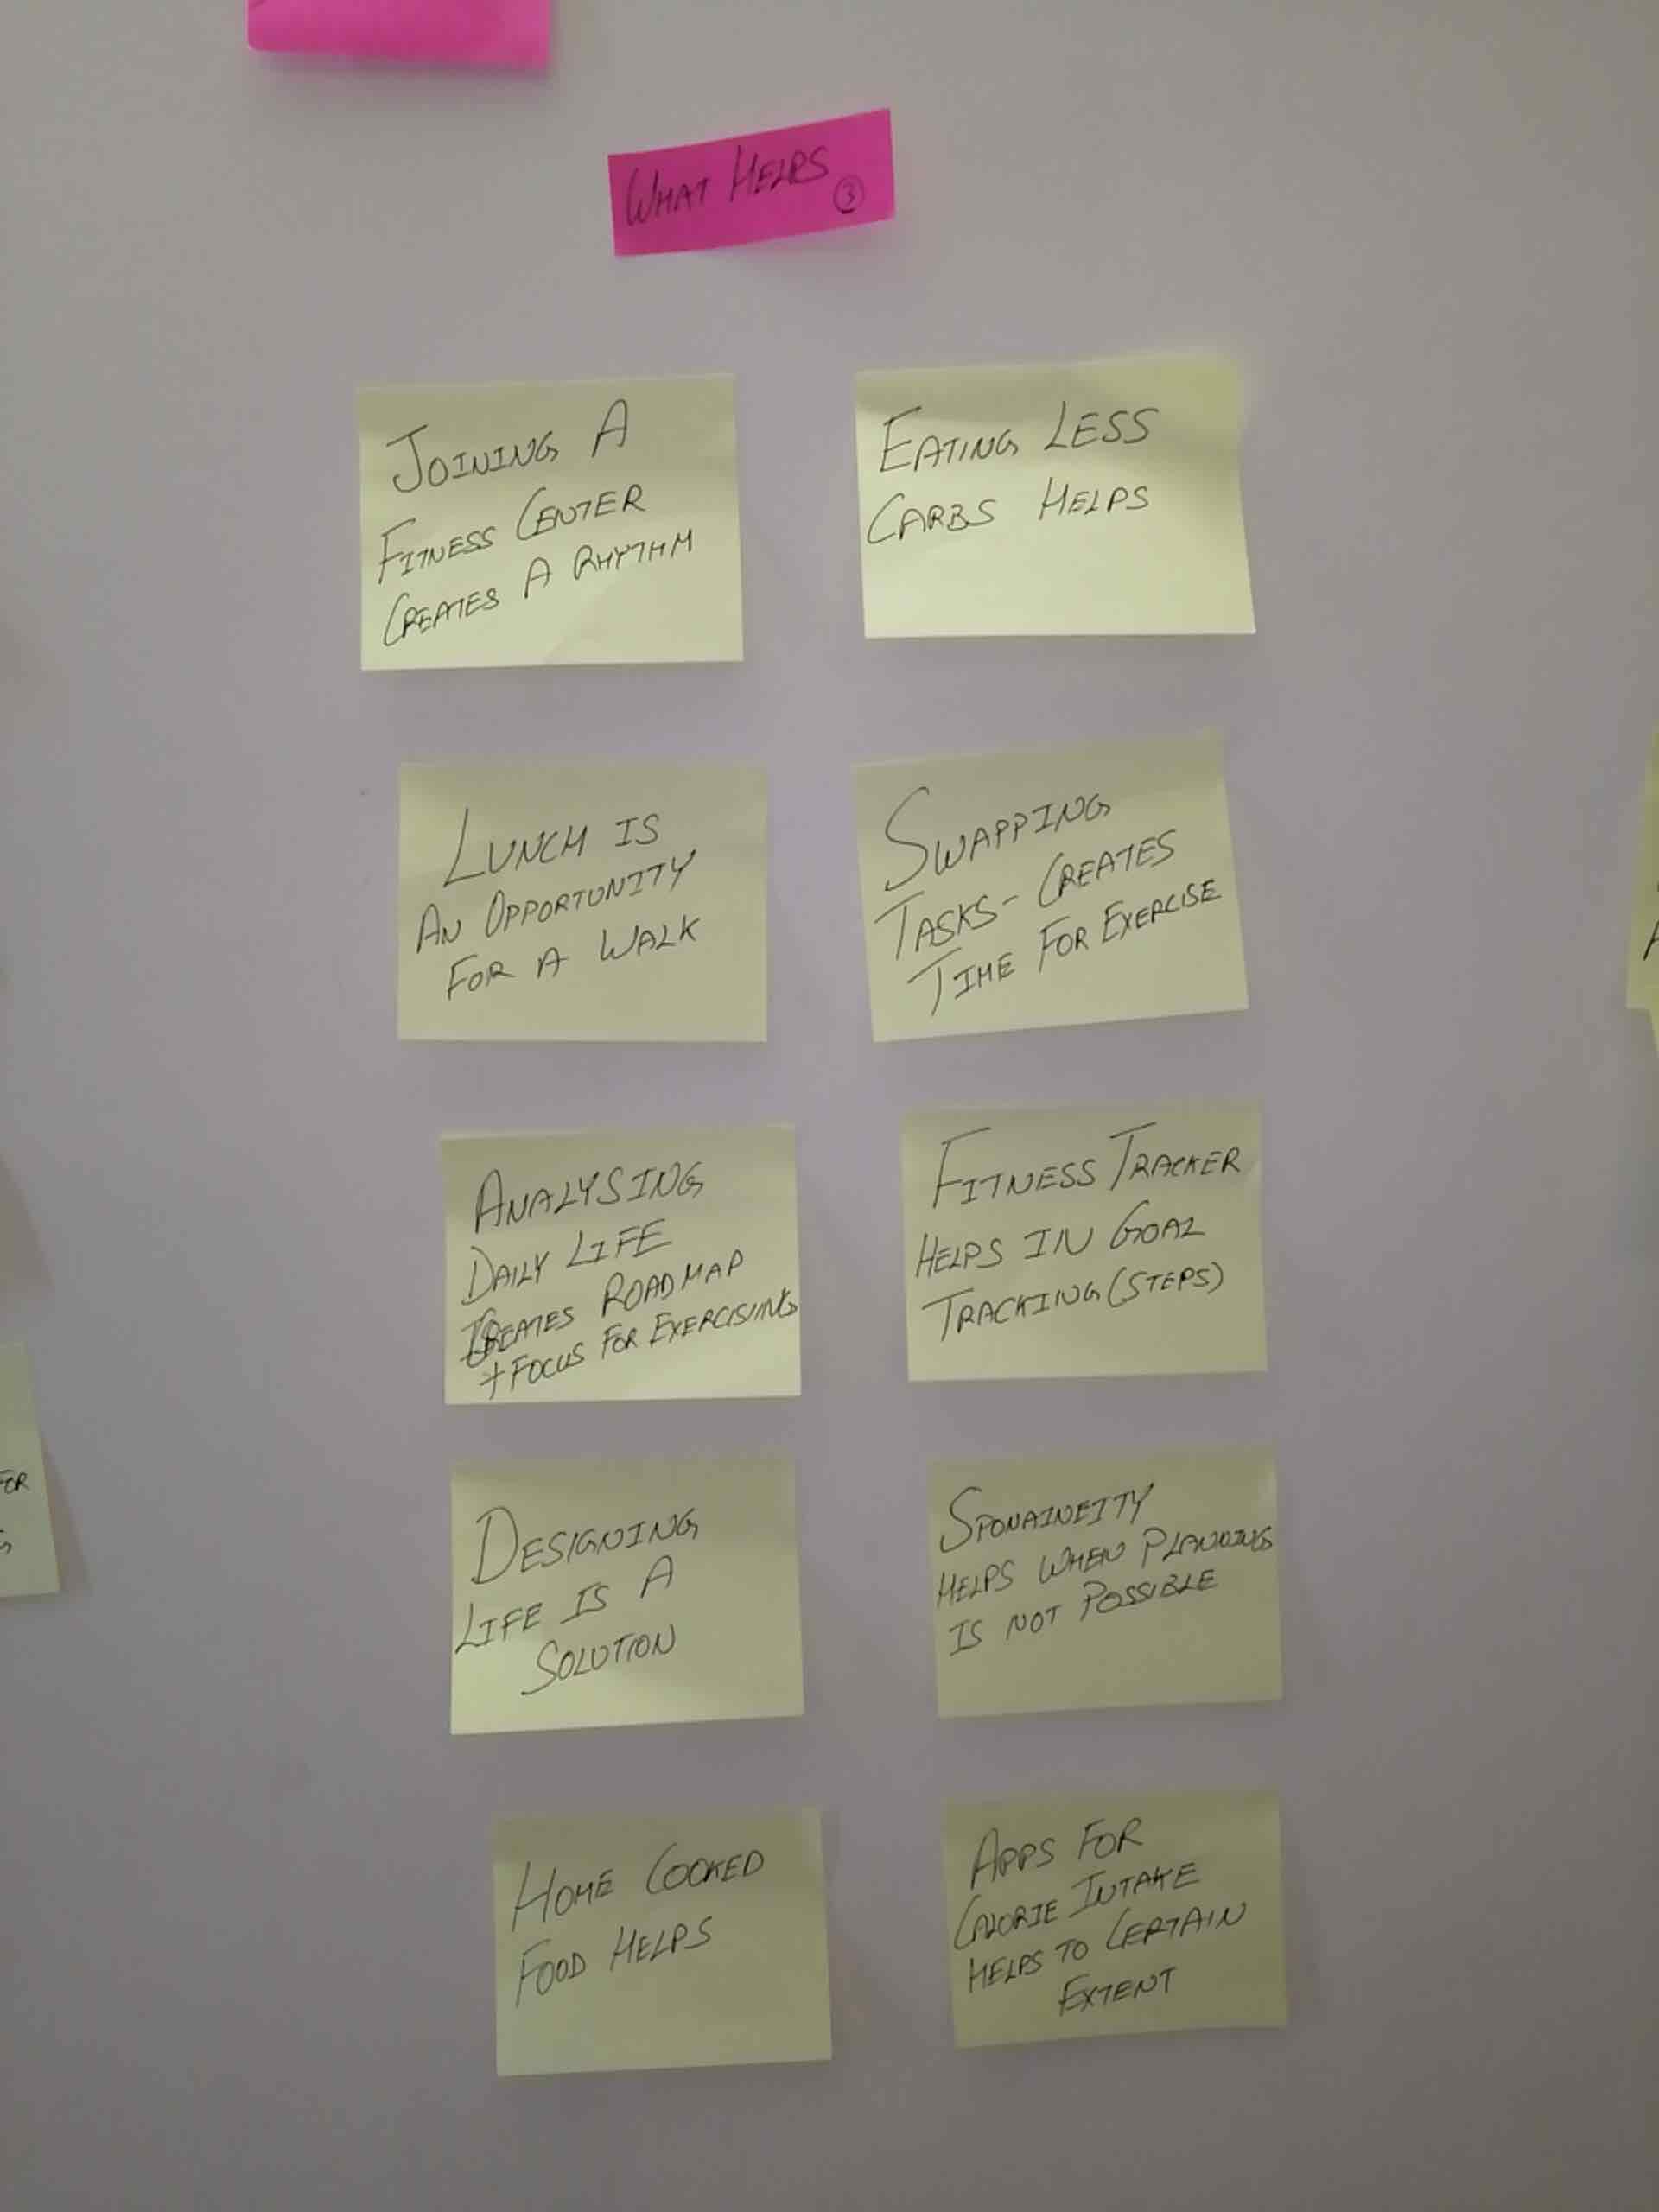 WHAT HELPS
3
JOINING A
FITNESS CENTER
CREATES A RHYTHM
EATING LESS
CARBS HELPS
LUNCH IS
AN OPPORTUNITY
FOR A WALK
SWAPPING
TASKS- CREATES
TIME FOR EXERCISE
ANALYSING
DAILY LIFE
CREATES ROADMAP
+ FOCUS FOR EXERCISING
FITNESS TRACKER
HELPS IN GOAL
TRACKING (STEPS)
DESIGNING
LIFE IS A
SOLUTION
SPONAINEITY
HELPS WHEN PLANNING
IS NOT POSSIBLE
HOME COOKED
FOOD HELPS
APPS FOR
CALORIE INTAKE
HELPS TO CERTAIN
EXTENT
FOR